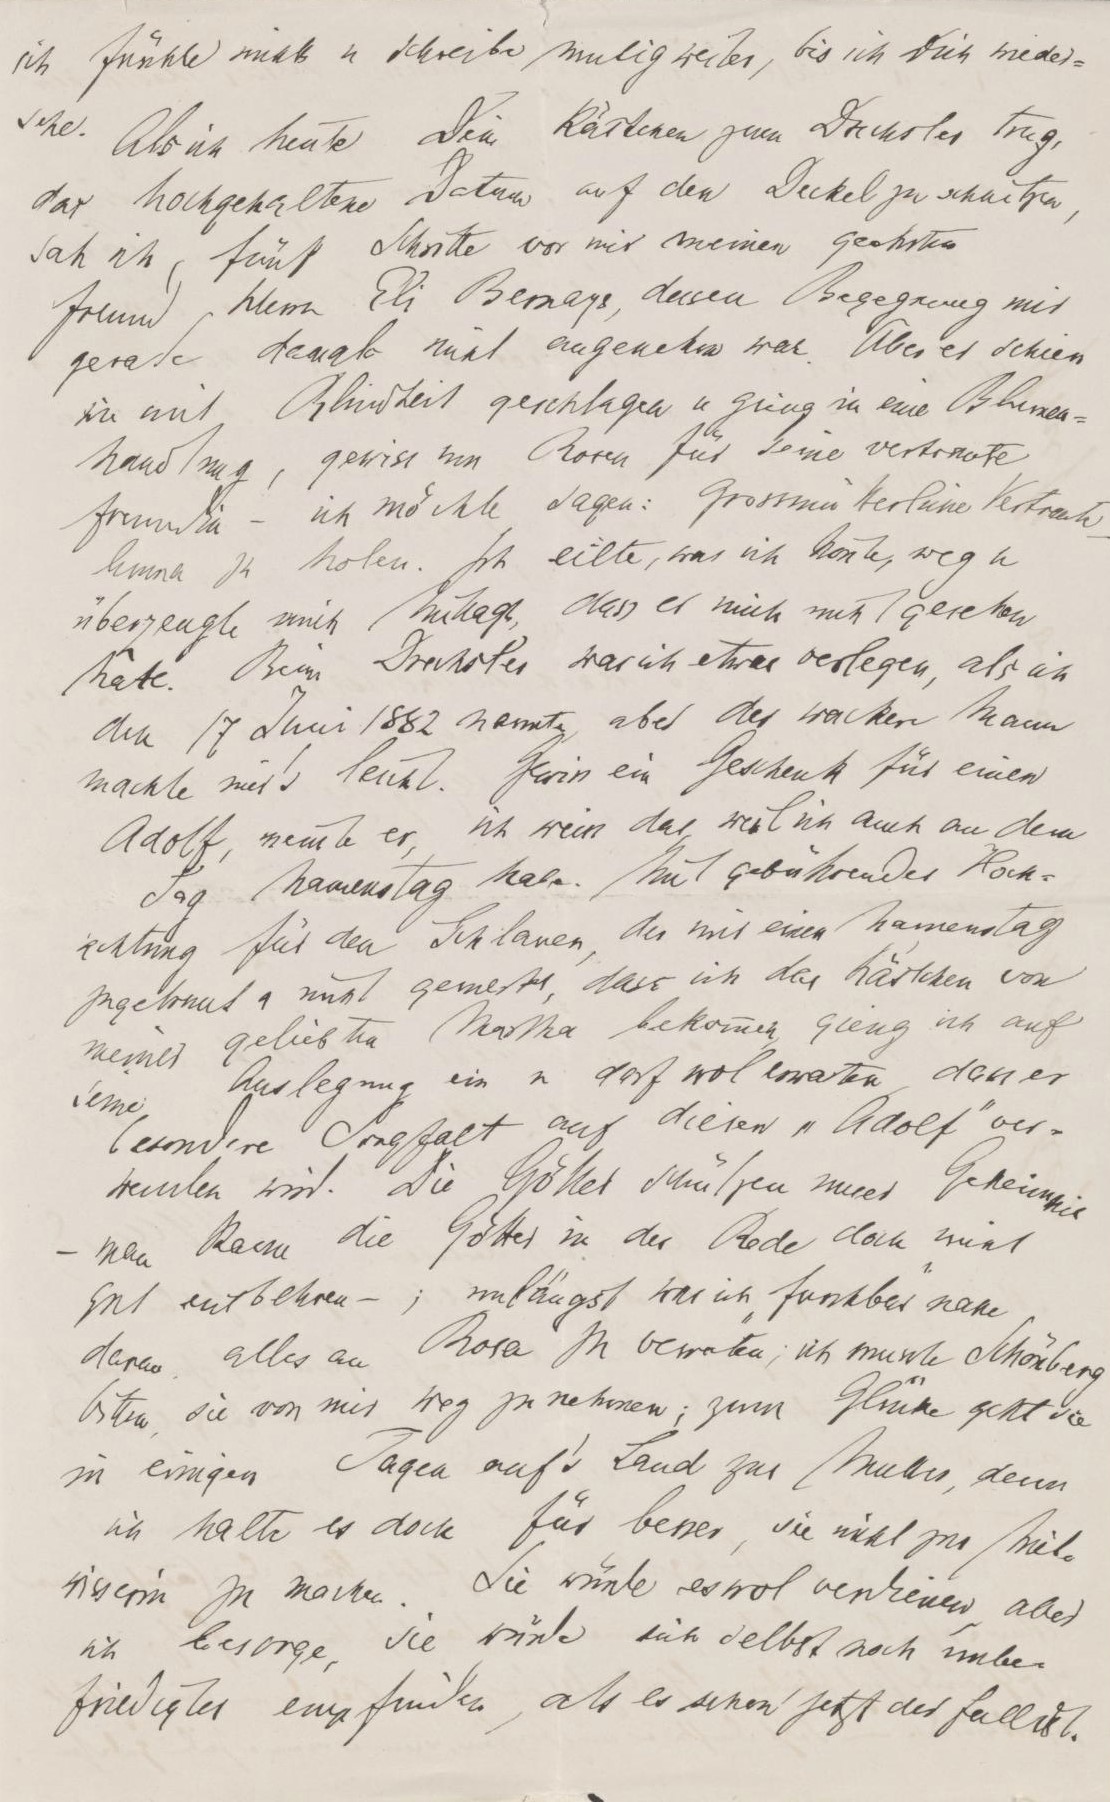 ich fürchte nichts u schreibe mutig weiter, bis ich Dich wieder=
sehe.
Als ich heute Dein Kästchen zum Drechsler trug,
das hochgehaltene Datum auf den Deckel zu schnitzen,
sah ich, fünf Schritte vor mir meinen geehrten
Freund Herrn Eli Bernays, dessen Begegnung mir
gerade damals nicht angenehm war. Aber er schien
wie mit Blindheit geschlagen u gieng in eine Blumen=
handlung, gewiss um Rosen für seine vertraute
Freundin – ich möchte sagen: Grossmütterliche Vertraute
Minna zu holen. Ich eilte, was ich konte, weg u
überzeugte mich Mittags, dass er mich nicht gesehen
hatte. Beim Drechsler war ich etwas verlegen, als ich
den 17 Juni 1882 nannte, aber der wackere Mann
machte mir's leicht. Gewiss ein Geschenk für einen
Adolf, meinte er, ich weiss das, weil ich auch an dem
Tag Namenstag habe. Mit gebührender Hoch=
achtung für den Schlauen, der mir einen Namenstag
zugetraut u nicht gemerkt, dass ich das Kästchen von
meiner geliebten Martha bekommen, gieng ich auf
seine Auslegung ein u darf wol erwarten, dass er
besondere Sorgfalt auf diesen „Adolf" ver=
wenden wird. Die Götter schützen unser Geheimnis
– man kann die Götter in der Rede doch nicht
gut entbehren – ; unlängst war ich „furchtbar" nahe
daran, alles an Rosa zu verraten; ich musste Schönberg
bitten, sie von mir weg zu nehmen; zum Glücke geht sie
in einigen Tagen auf's Land zur Mutter, denn
ich halte es doch für besser, sie nicht zur Mit=
wisserin zu machen. Sie würde es wol verdienen, aber
ich besorge, sie würde sich selbst noch unbe=
friedigter empfinden, als es schon jetzt der Fall ist.